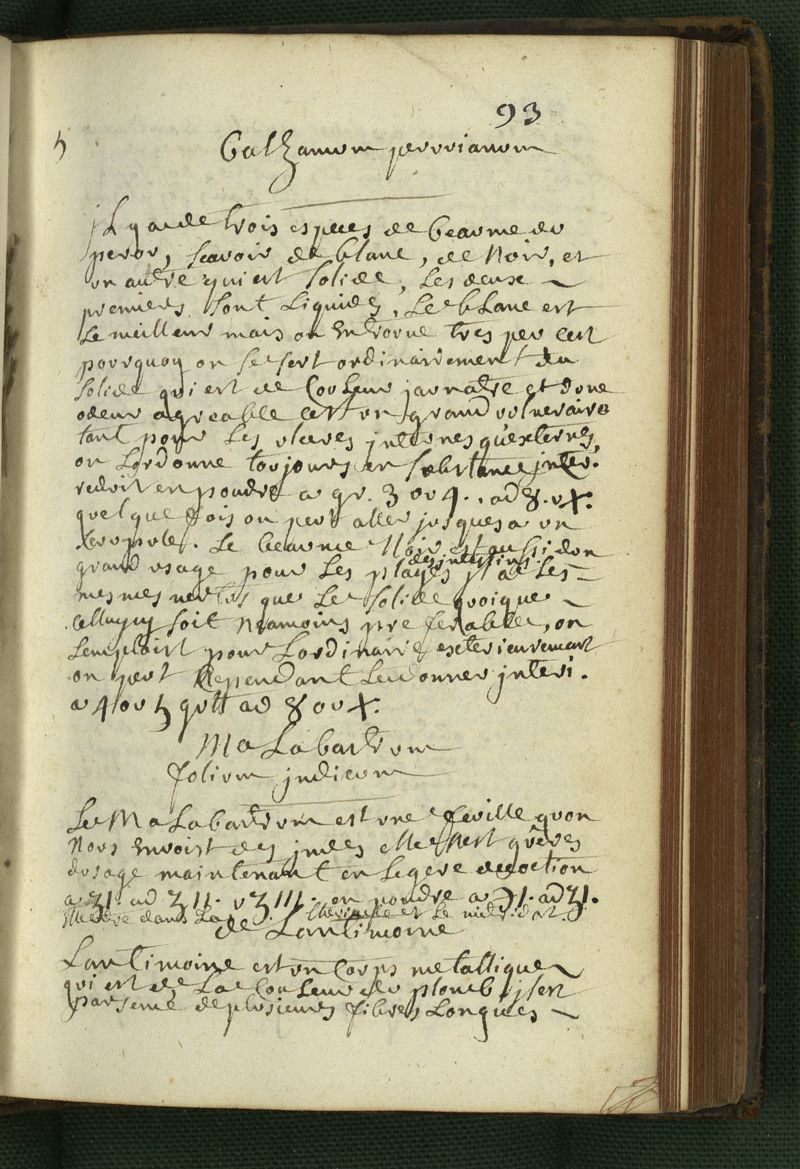 93
Balzamum peruvianum
jL ya de trois especes de beaume du
perou, scavoir de blanc, de Noir, et
un autre qui est Solide, Les deux
premiers sont Liquides, Le blanc est
Le meilleur mais on En trouve tres peu cest
pourquoy on se sert ordinairement du
Solide qui est de Couleur jaunatre et dune
odeur agreable cest un grand vulneraire
tant pour Les ulceres internes qu'externes,
on Lordonne toujours en substance inter.
reduit en poudre a gr. 3 ou 4. ad 8. ou X.
quelque fois on peut aller jusques a un
scrupule. Le beaume Noir est aussi dun
grand usage pour Les playes
des intestins il a Les
mesmes vertus que Le Solide quoique
celluycy soit Neamoins preferable, on
Lemploist pour Lordinaire exterieurement
on peut Cependant Le donner interi.
a 4 ou 5 gutt ad 8 ou X.
MaLabatrum
folium judicum
Le MaLabatrum est une feuille quon
Nous Envoist des jndes elle Nest gueres
dusage maintenant en Legere decoction
a ʒ1. ad ʒ11. u ʒ111. en poudre a ℈1. ad ʒ1.
Entre dans La Theriaque et Le mitridat.
de Lantimoine
Lantimoine est un Corps metallique
qui est de La Couleur du plomb, jl est
parsemé de plusieurs fibres Longues